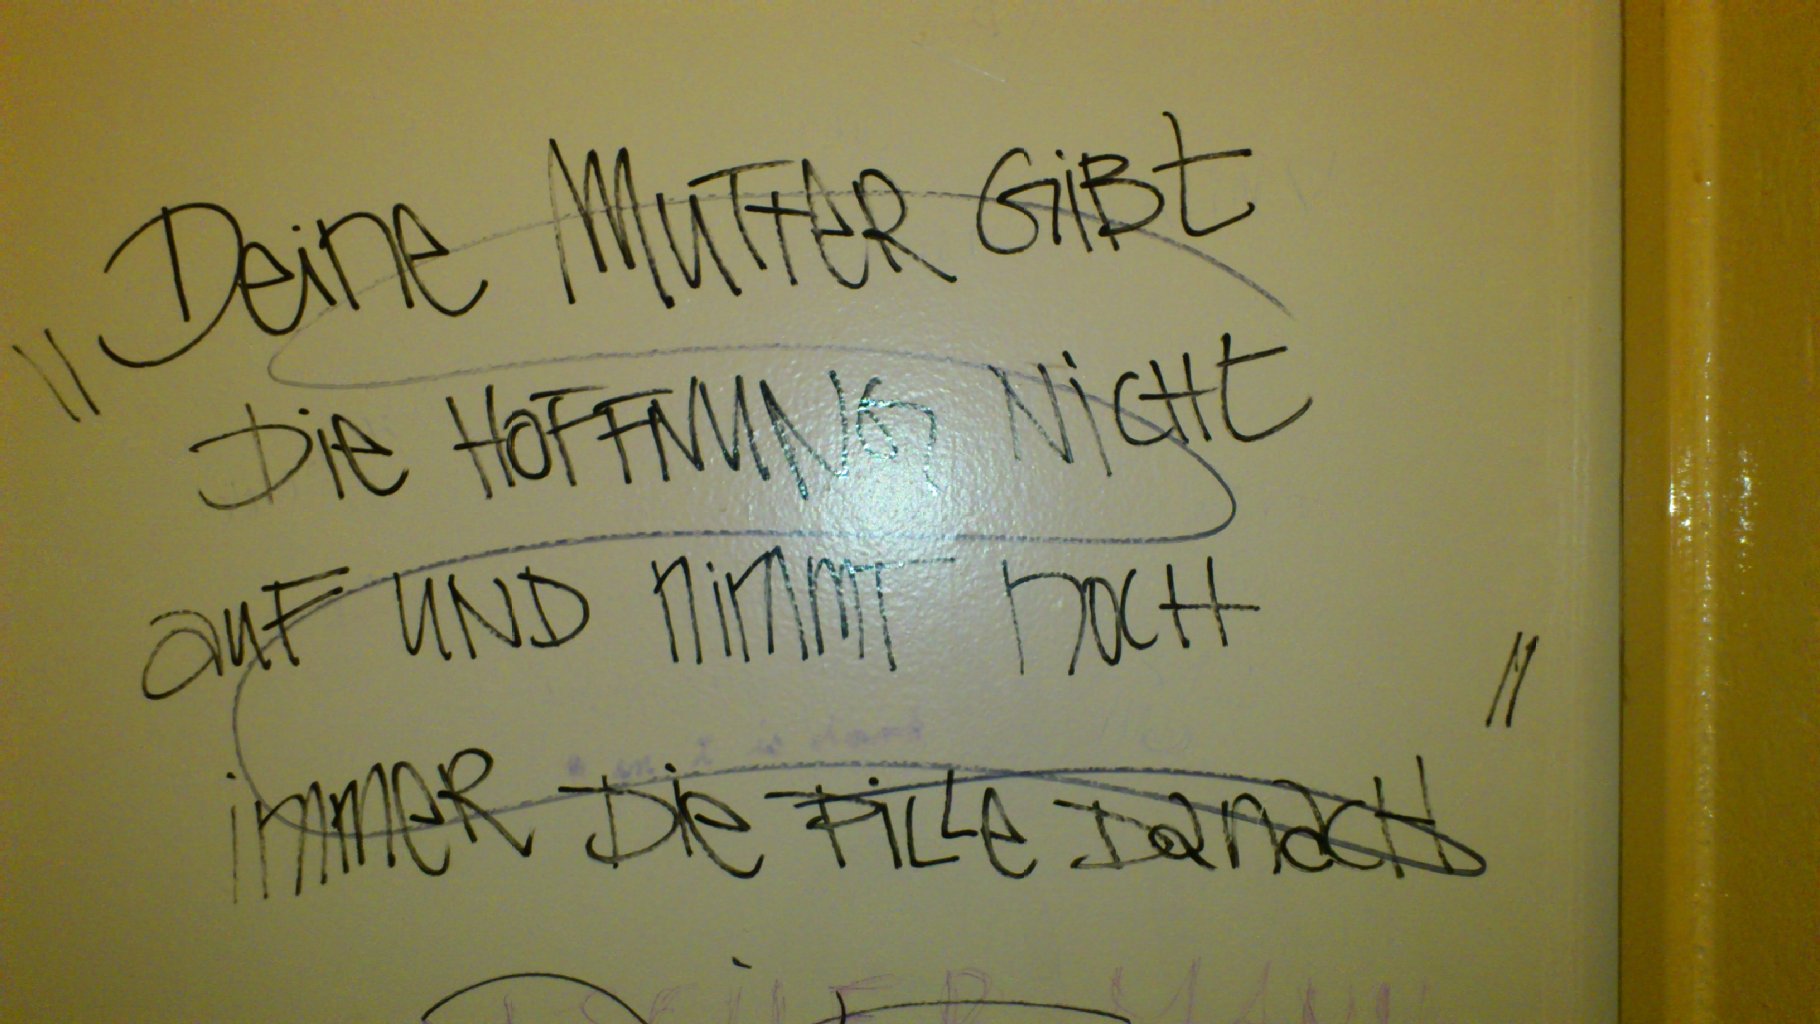 "Deine MUTTER GiBt
Die HOFFNUNG NiCHt
auF UND nimmT noCH
immER Die PiLLe DanaCH"